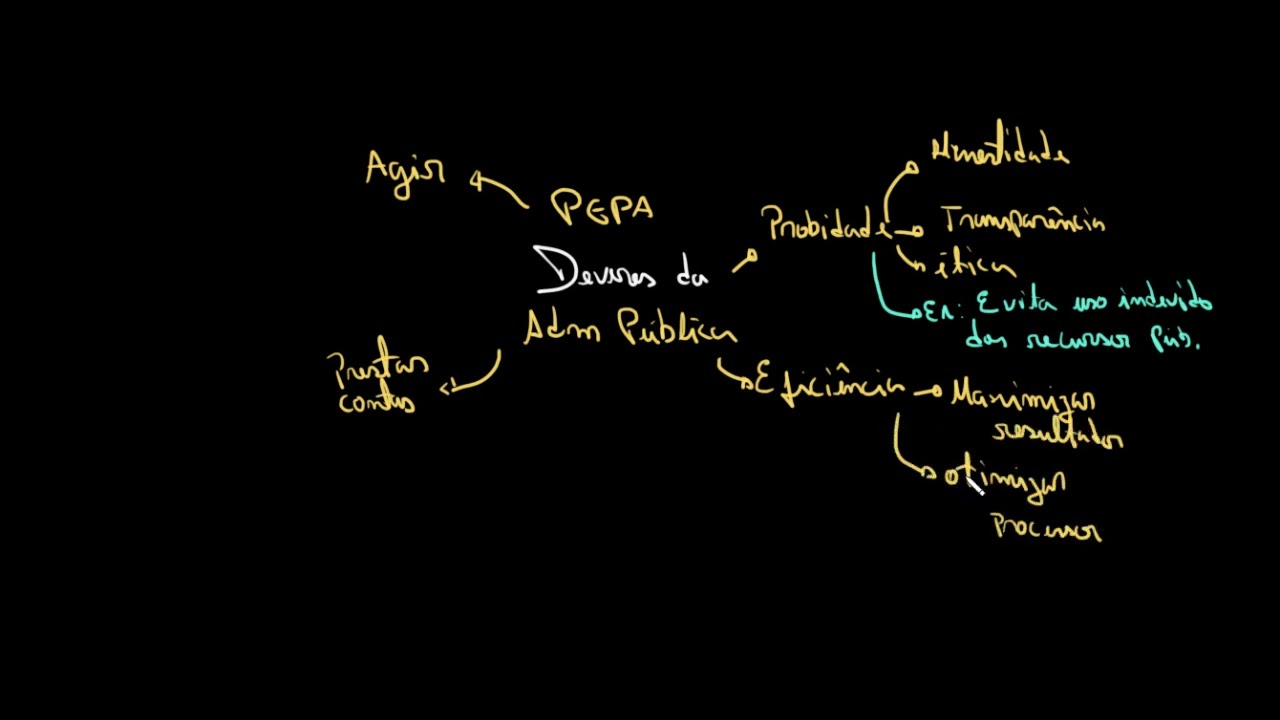 PEPA
Deveres da
Adm Pública
Agir
Prestar
contas
Probidade
Honestidade
Transparência
ética
Ex: Evita uso indevido
dos recursos Púb.
Eficiência
Maximizar
resultados
otimizar
Processos